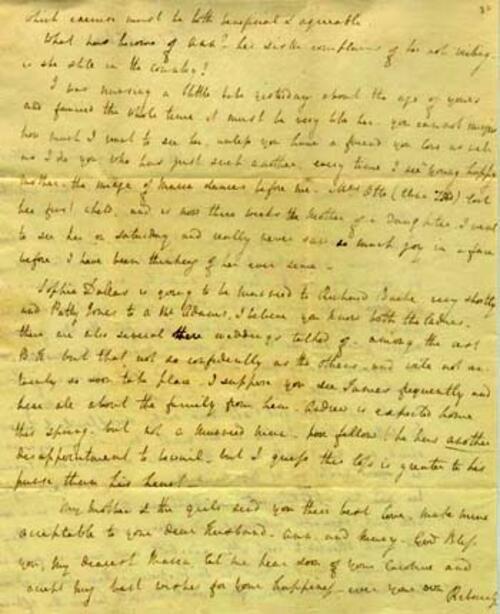 which exercise must be both beneficial & agreeable.
What has become of Ann? her sister complains of her not writing.
is she still in the country?
I was nursing a little babe yesterday about the age of yours
and fancied the whole time it must be very like her. you cannot imagine
how much I want to see her, unless you have a friend you love as well
as I do you, who has just such another, every time I see a young happy
mother, the image of Maria dances before me. Mrs Otto (Eliza Tod) lost
her first child, and is now three weeks the Mother of a Daughter. I went
to see her on saturday and really never saw so much joy in a face
before. I have been thinking of her ever since.
Sophia Dallas is going to be married to Richard Bache, very shortly
and Patty Jones to a Mr Adams, I believe you know both the ladies.
there are also several there weddings talked of, among the rest
B. G. but that not so confidently as the others, and will not
so soon take place. I suppose you see James frequently and
hear all about the family from him. Andrew is expected home
this spring, but not a married man. poor fellow! he has another
disappointment to record, but I guess this loss is greater to his
purse than his heart.
My Mother & the girls send you their best love, make mine
acceptable to your dear Husband, Ann, and Henry. God Bless
you, my dearest Maria, let me hear soon of your Caroline and
accept my best wishes for your happiness. ever your own Rebecca